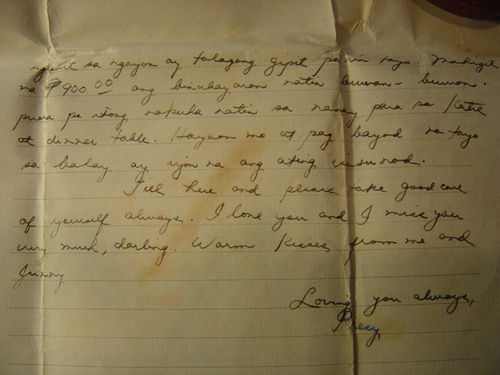 sa ngayon ay talagang gipit pa rin tayo.
na ₱900.00 ang binabayaran natin buwan-buwan.
pera pa itong nakuha natin sa nanay para sa
at dinner table. Hayaan mo at pag bayad na tayo
sa bahay ay iyon na ang ating isusunod.
Till here and please take good care
of yourself always. I love you and I miss you
very much, darling. Warm kisses from me and
Loving you always,
Precy